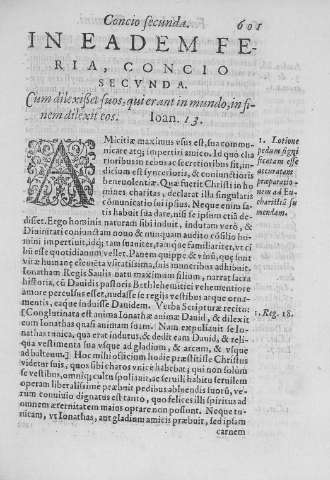 Concio secunda. 601
IN EADEM FE-
RIA, CONCIO
SECVNDA.
Cum dilexisset suos, qui erant in mundo, in fi-
nem dilexit eos. Ioan. 13.
AMicitiæ maximus vsus est, sua commu-
nicare atq; impertiri amico. Id quo cha-
ritoribus in rebus ac secretioribus fit, in-
dicium est syncerioris, & coniunctioris
beneuolentiæ. Quæ fuerit Christi in ho-
mines charitas, declarat illa singularis
cōmunicatio sui ipsius. Neque enim sa-
tis habuit sua dare, nisi se ipsum etiā de-
disset. Ergo hominis naturam sibi induit, indutam verò, &
Diuinitati coniunctam nouo & nunquam audito cōsilio ho-
mini impertiuit, idq; tam suauiter, tam que familiariter, vt ci-
bū esse quotidianum vellet. Panem quippe & vinū, quæ sunt
vitæ humanæ elementa vsitatissima, suis muneribus adhibuit.
Ionatham Regis Saulis natu maximum filium, narrat sacra
historia, cū Dauidis pastoris Bethlehemitici vehementiore
amore perculsus esset, nudasse se regijs vestibus arque orna-
mentis, eaque induisse Dauidem. Verba Scripturæ recito:
[Conglutinata est anima Ionathæ animæ Dauid, & dilexit
eum Ionathas quasi animam suam. Nam expoliauit se Io-
nathas tunica, qua erat indutus, & dedit eam Dauid, & reli-
qua vestimenta sua vsque ad gladium, & arcum, & vsque
ad balteum.] Hoc mihi officium hodie præstitisse Christus
videtur suis, quos sibi charos vnicè habebat; qui non solùm
se vestibus, omniq; cultu spoliauit, ac seruili habitu seruilem
operam liberalissimè præbuit pedibus abluendis suorū, ve-
rum conuiuio dignatus est tanto, quo felices illi spiritus ad
omnem æternitatem maius optare non possent. Neque tu-
nicam, vt Ionathas, aut gladium amicis præbuit, sed ipsam
carnem
1. Lotione
pedum signi
ficatam esse
accuratam
præparatio-
nem ad Eu-
charistiā su-
mendam.
1. Reg. 18.